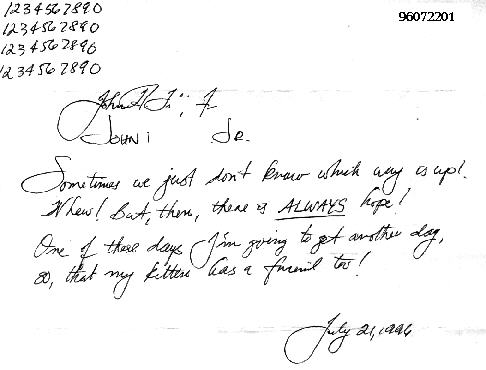 1234567890
96072201
1234567890
1234567890
1234567890
JOHN JR.
Sometimes we just don't know which way is up!
Whew! But, then, there is ALWAYS hope!
One of these days I'm going to get another dog,
so, that my kitten has a friend too!
July 21, 1996